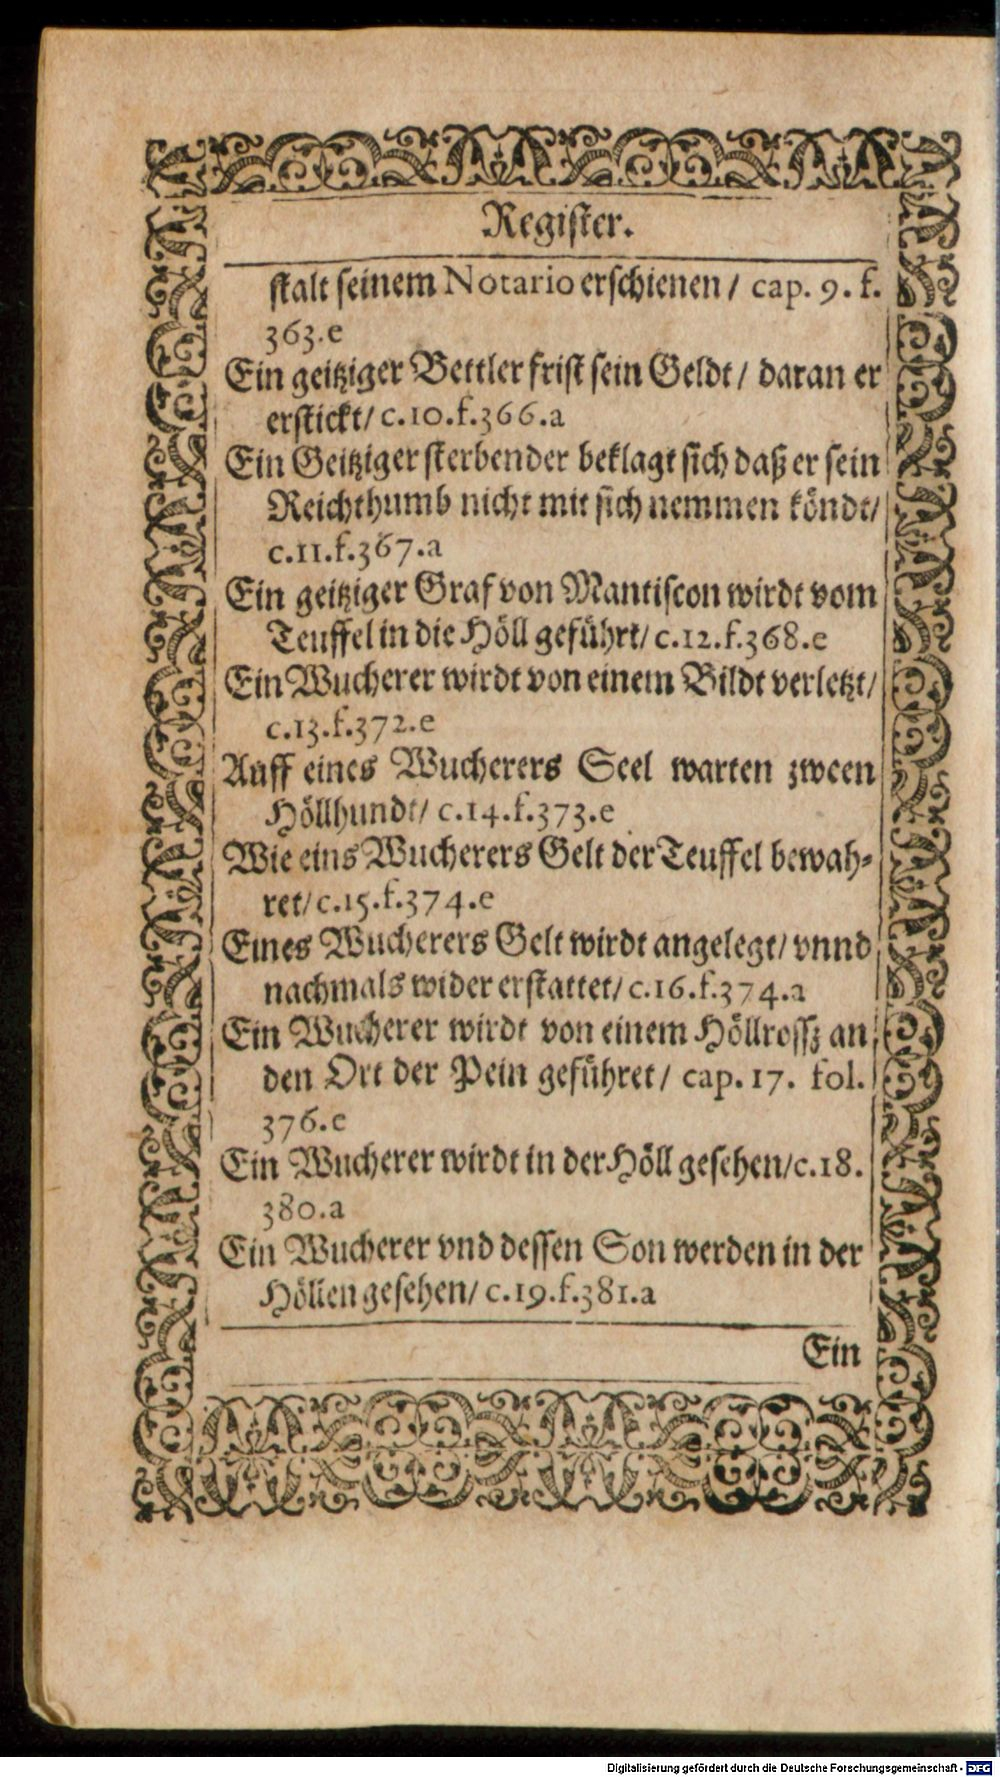 Register.
ſtalt ſeinem Notario erſchienen / cap. 9. f.
363.e
Ein geitziger Bettler friſt ſein Geldt / daran er
erſtickt / c.10.f.366.a
Ein Geitziger ſterbender beklagt ſich daß er ſein
Reichthumb nicht mit ſich nemmen köndt /
c.11.f.367.a
Ein geitziger Graf von Mantiſcon wirdt vom
Teuffel in die Höll geführt / c.12.f.368.e
Ein Wucherer wirdt von einem Bildt verletzt /
c.13.f.372.e
Auff eines Wucherers Seel warten zween
Höllhundt / c.14.f.373.e
Wie eins Wucherers Gelt der Teuffel bewah⸗
ret / c.15.f.374.e
Eines Wucherers Gelt wirdt angelegt / vnnd
nachmals wider erſtattet / c.16.f.374.a
Ein Wucherer wirdt von einem Höllroſſz an
den Ort der Pein geführet / cap. 17. fol.
376.e
Ein Wucherer wirdt in der Höll geſehen / c.18.
380.a
Ein Wucherer vnd deſſen Son werden in der
Höllen geſehen / c.19.f.381.a
Ein
Digitalisierung gefördert durch die Deutsche Forschungsgemeinschaft - DFG